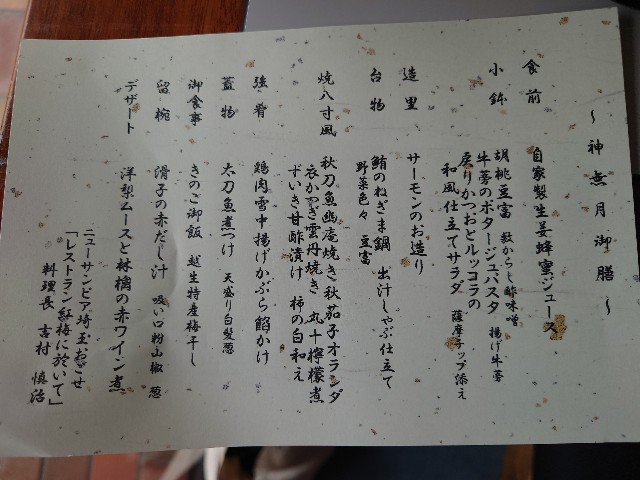 ～神無月御膳～
食前
自家製生姜蜂蜜ジュース
小鉢
胡桃豆富 敷からし酢味噌
牛蒡のポタージュパスタ 揚げ牛蒡
戻りかつおとルッコラの
和風仕立てサラダ 薩摩チップ添え
造里
サーモンのお造り
台物
鮪のねぎま鍋 出汁しゃぶ仕立て
野菜色々 豆富
焼八寸風
秋刀魚幽庵焼き 秋茄子オランダ
衣かつぎ雲丹焼き 丸十檸檬煮
ずいき甘酢漬け 柿の白和え
強肴
鶏肉雪中揚げかぶら餡かけ
蓋物
太刀魚煮つけ 天盛り白髪葱
御食事
きのこ御飯 越生特産梅干し
留椀
滑子の赤だし汁 吸い口粉山椒 葱
デザート
洋梨ムースと林檎の赤ワイン煮
ニューサンピア埼玉おごせ
「レストラン紅梅に於いて」
料理長 吉村 慎治